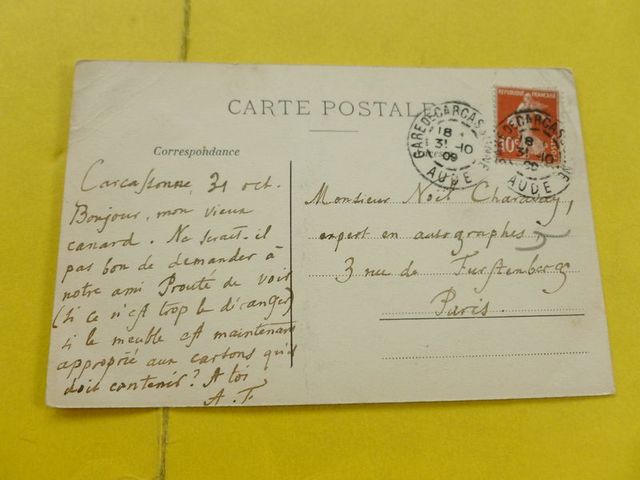 CARTE POSTALE
REPUBLIQUE FRANÇAISE
10c
GARE DE CARCASSONNE
18
31-10
09
AUDE
GARE DE CARCASSONNE
18
31-10
09
AUDE
Correspondance
Carcassonne, 31 oct.
Bonjour, mon vieux
canard. Ne serait-il
pas bon de demander à
notre ami Prouté de voir
(si ce n'est trop le déranger)
si le meuble est maintenant
approprié aux cartons qu'il
doit contenir? A toi
A. F.
Monsieur Noël Charavay,
expert en autographes,
3 rue de Furstenberg
Paris.
3